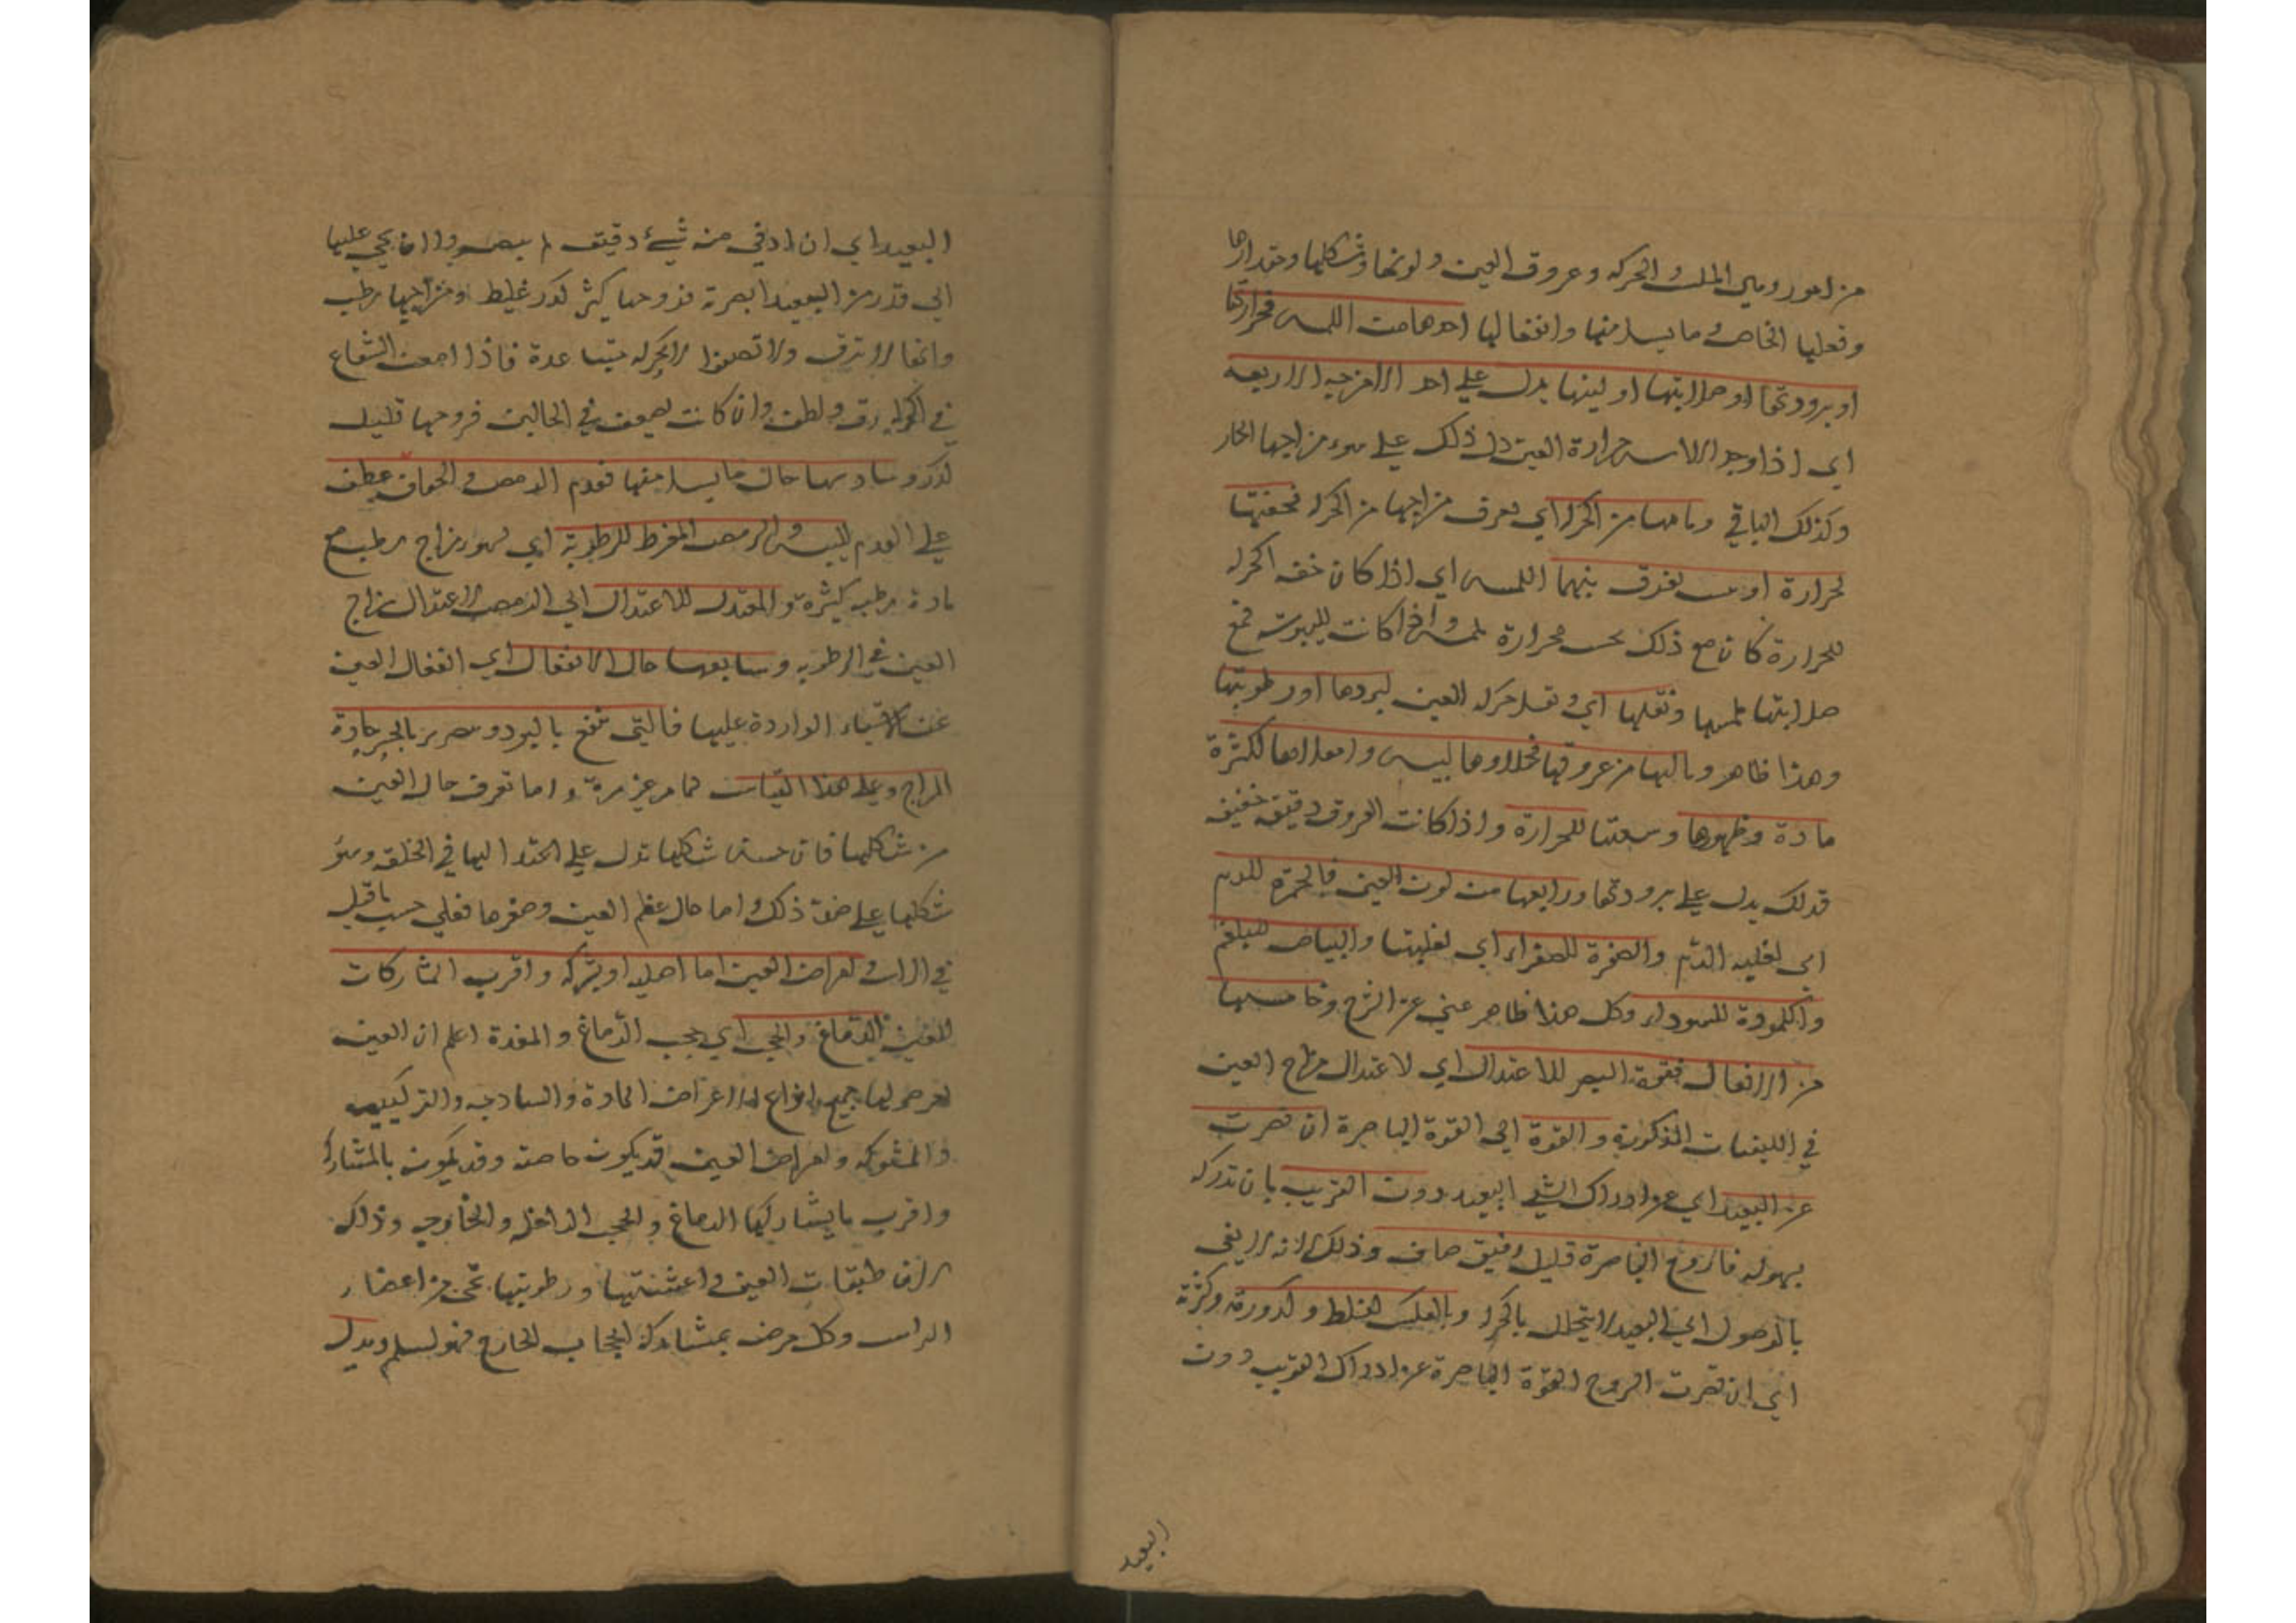 من امور وهي الملمس والحركة وعروق العين ولونها وشكلها ومقدارها
وفعلها الخاص وما يسيل منها وانفعالها احدها من اللمس فحرارتها
او برودتها او صلابتها او لينها يدل على احد الامزجه الاربعه
اي اذا وجد اللامس حرارة العين دل ذلك على سوء مزاجها الحار
وكذلك الباقي وثانيها من الحركة اي يعرف مزاجها من الحركة فخفتها
لحرارة او يبس يفرق بينهما اللمس اي اذا كان خفه الحركه
للحرارة كان مع ذلك يحس بحرارة ملمس واذا كانت لليبوسة فمع
صلابتها ملمسها وثقلها اي ثقل حركه العين لبردها او رطوبتها
وهذا ظاهر وثالثها من عروقها فخلاوها ليبس وامتلاءها لكثرة
مادة وظهورها وسعتها للحرارة واذا كانت العروق دقيقه خفيفه
فذلك يدل على برودتها ورابعها من لون العين فالحمرة للدم
اى لغلبه الدم والصفرة للصفراء اي لغلبتها والبياض للبلغم
والكمودة للسوداء وكل هذا ظاهر غني عن الشرح وخامسها
من الافعال فقوة البصر للاعتدال اي لاعتدال مزاج العين
في الكيفيات المذكورة والقوة اى القوة الباصرة ان قصرت
عن البعيد اي عن ادراك الشئ البعيد دون القريب بان تدركه
بسهوله فالروح الباصرة قليل رقيق صاف وذلك لانه لا يفي
بالوصول اي البعيد لا يتحلل بالحركة وبالعكس لغلظ وكدورة وكثرة
اي ان قصرت الروح القوة الباصرة عن ادراك القريب دون
البعيد
البعيد اي ان ادني منه شئ دقيق لم يبصر واذا نحي عليها
الى قدر من البعيد ابصرته فروحها كثير كدر غليظ ومزاجها رطب
وانها لا ترق ولا تصفوا الا بحركه متباعدة فاذا امعن الشعاع
في الحركة رق ولطف وان كانت تضعف في الحالين فروحها قليل
كدر وسادسها حال ما يسيل منها فعدم الرمص والجفاف عطف
على العدم لليبس والرمص المفرط للرطوبة اي لسوء مزاج رطب مع
مادة رطبه كثيرة والمعتدل للاعتدال اي الرمص لاعتدال مزاج
العين في الرطوبه وسابعها حال الانفعال اي انفعال العين
عن الاشياء الواردة عليها فالتي تنتفع بالبرد وتتضرر بالحر حارة
المزاج وعلى هذا القياس مما مر غير مرة واما تعرف حال العين
من شكلها فان حسن شكلها تدل على اعتدالها في الخلقه وسوء
شكلها على ضد ذلك واما حال عظم العين وصغرها فعلى حسب ما قيل
في الراس وامراض العين اما اصليه او بشركه واقرب المشاركات
للعين الدماغ والحجب اي حجب الدماغ والمعدة اعلم ان العين
تعرض لها جميع انواع الامراض المادة والساذجه والتركيبيه
والمشتركه وامراض العين قد يكون خاصة وقد يكون بالمشاركة
واقرب ما يشاركها الدماغ والحجب الداخله والخارجه وذلك
لان طبقات العين واغشيتها ورطوبتها تجئ من اعضاء
الراس وكل مرض بمشاركة الحجاب الخارج فهو اسلم ويدل